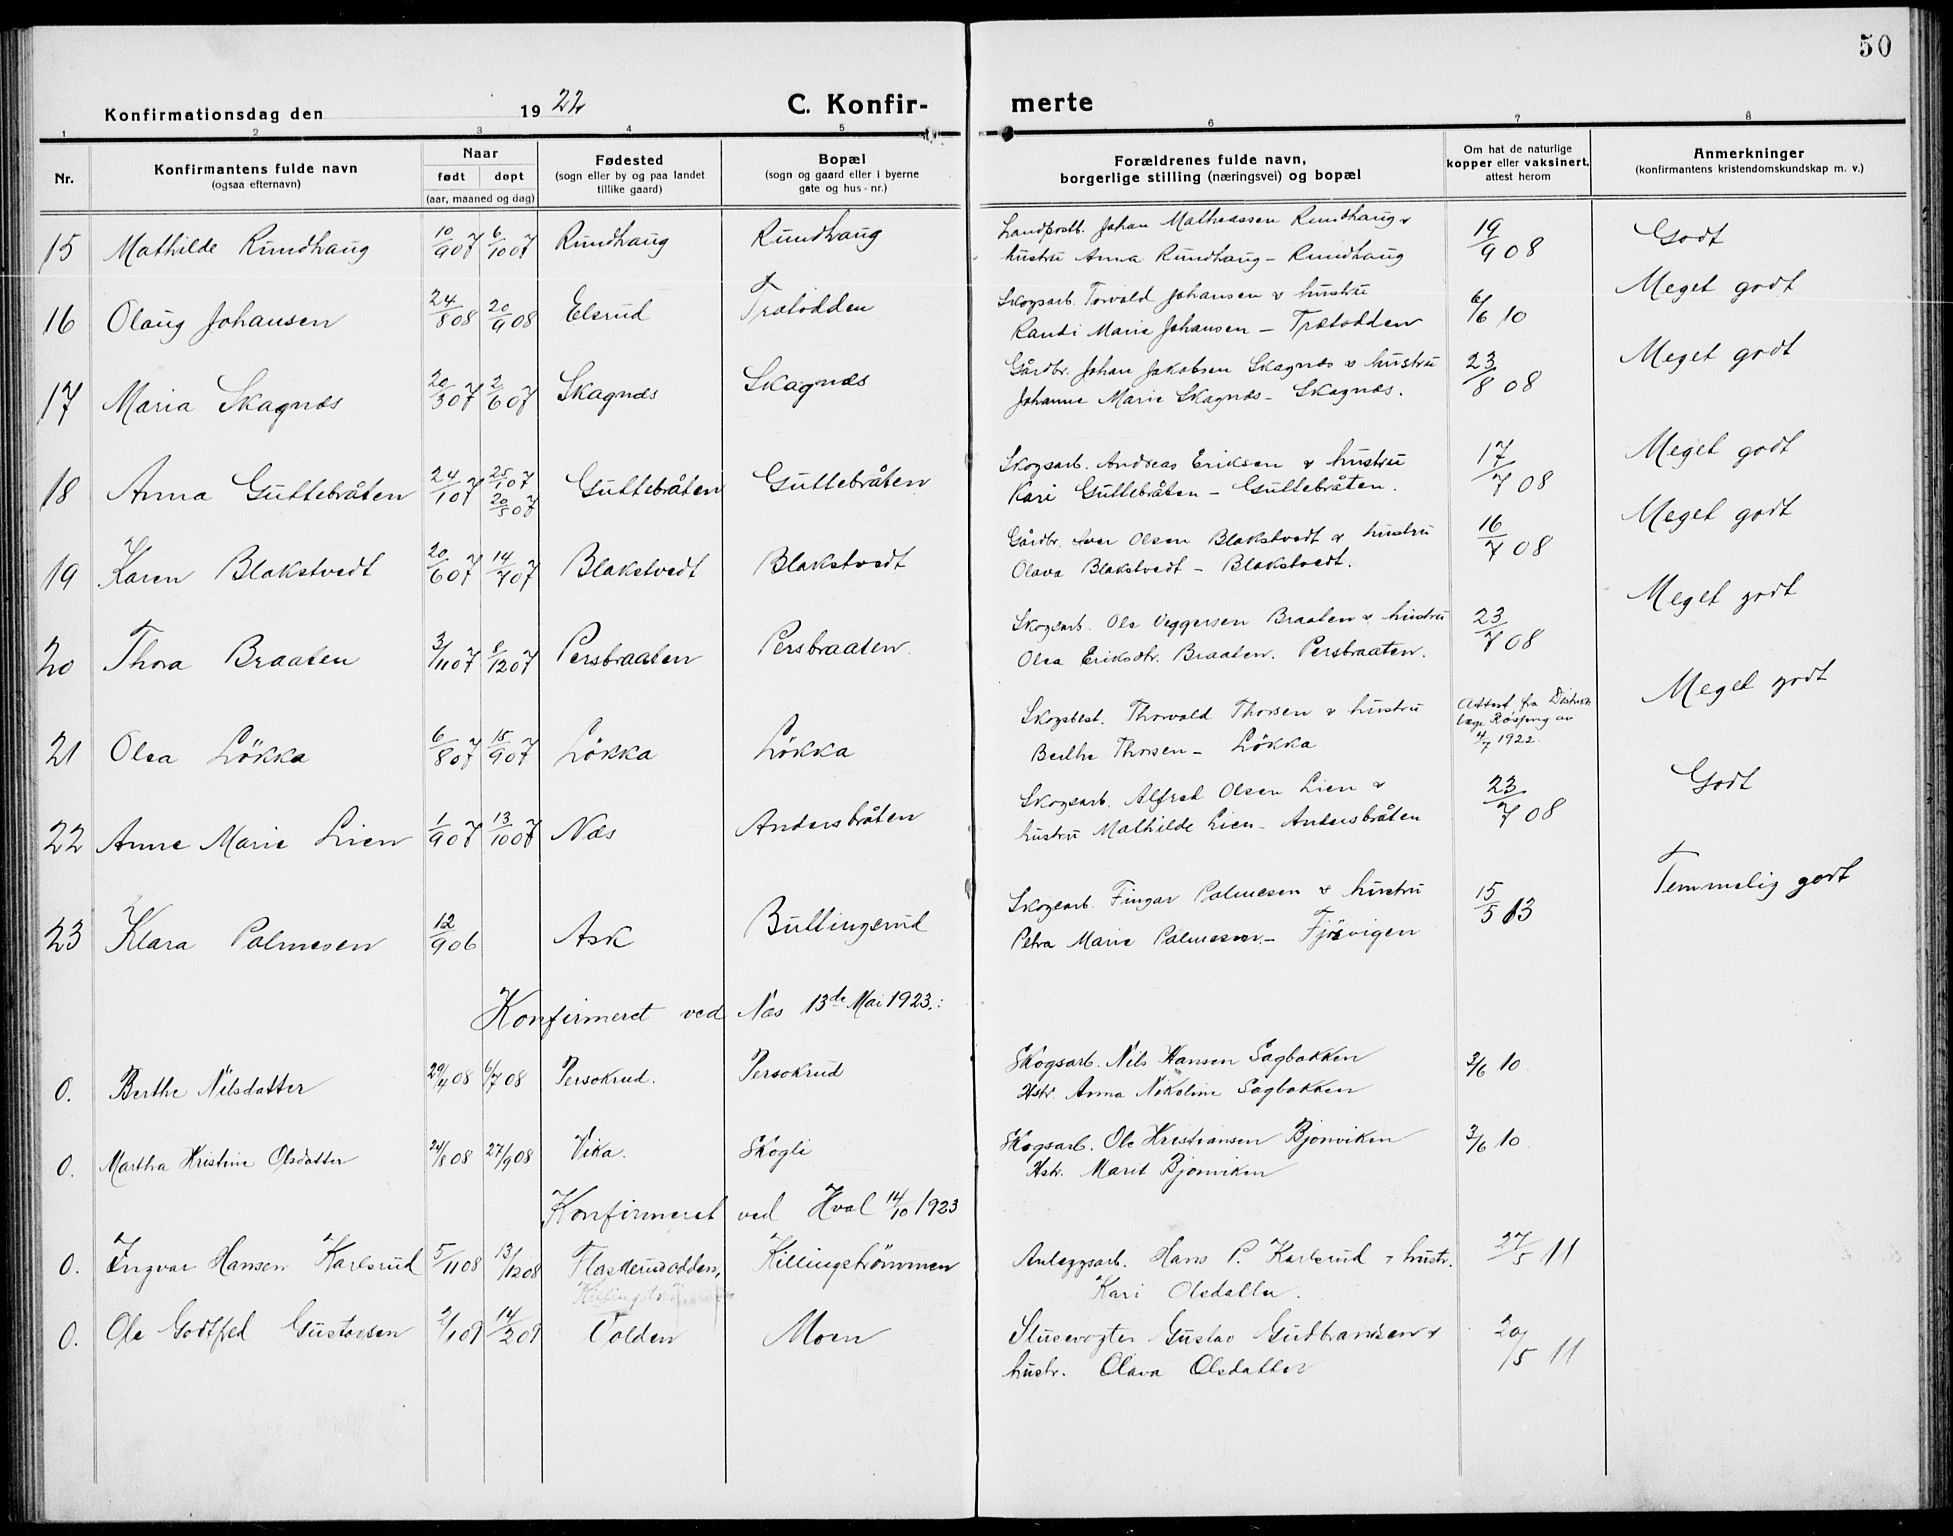 50
Konfirmationsdag den 1922 C. Konfir- merte
1 2 3 4 5 6 7 8
Nr.
Konfirmantens fulde navn
(ogsaa efternavn)
Naar
født døpt
(aar, maaned og dag)
Fødested
(sogn eller by og paa landet
tillike gaard)
Bopæl
(sogn og gaard eller i byerne
gate og hus-nr.)
Forældrenes fulde navn,
borgerlige stilling (næringsvei) og bopæl
Om hat de naturlige
kopper eller vaksinert,
attest herom
Anmerkninger
(konfirmantens kristendomskundskap m. v.)
15 Mathilde Rundhaug 10/9 07 6/10 07 Rundhaug Rundhaug Landpostb. Johan Matheassen Rundhaug & 19/9 08 Godt
hustru Anna Rundhaug - Rundhaug
16 Olaug Johansen 24/8 08 20/9 08 Elsrud Trætodden Skogsarb. Torvald Johansen & hustru 6/6 10 Meget godt
Randi Marie Johansen - Trætodden
17 Maria Skagnæs 20/3 07 2/6 07 Skagnæs Skagnæs Gårdbr. Johan Jakobsen Skagnæs & hustru 23/8 08 Meget godt
Johanne Marie Skagnæs - Skagnæs.
18 Anna Guttebråten 24/1 07 25/1 07 20/5 07 Guttebråten Guttebråten Skogsarb. Andreas Eriksen & hustru 17/7 08 Meget godt
Kari Guttebråten - Guttebråten.
19 Karen Blakstvedt 20/6 07 14/7 07 Blakstvedt Blakstvedt Gårdbr. Iver Olsen Blakstvedt & hustru 16/7 08 Meget godt
Olava Blakstvedt - Blakstvedt.
20 Thora Braaten 3/11 07 8/12 07 Persbraaten Persbraaten Skogsarb. Ole Veggersen Braaten & hustru 23/7 08 Meget godt
Olea Eriksdtr. Braaten. Persbraaten.
21 Olea Lökka 6/8 07 15/9 07 Lökka Lökka Skogsbest. Thorvald Thorsen & hustru Attest fra Distrikts Meget godt
Berthe Thorsen - Lökka læge Røsjorg av
4/7 1922.
22 Anne Marie Lien 1/9 07 13/10 07 Næs Andersbråten Skogsarb. Alfred Olsen Lien & 23/7 08 Godt
hustru Mathilde Lien - Andersbråten
23 Klara Palmesen 12/9 06 Ask Bullingerud Skogsarb. Fingar Palmesen & hustru 15/5 13 Temmelig godt
Petra Marie Palmesen - Fjösvigen
Konfirmeret ved Næs 13de Mai 1923.:
0. Berthe Nilsdatter 29/4 08 6/7 08 Persokrud. Persokrud Skogsarb. Nils Hansen Sagbakken 3/6 10.
Hstr. Anna Nikoline Sagbakken
0. Martha Kristine Olsdatter 24/8 08 27/9 08 Vika. Skogli Skogsarb. Ole Kristiansen Bjonviken 3/6 10.
Hstr. Marit Bjonviken
Konfirmeret ved Hval 14/10 1923
0. Ingvar Hansen Karlsrud 5/11 08 13/12 08 Flaskerudodden, Killingströmmen Anleggsarb. Hans P. Karlsrud & hustr. 27/5 11
Kari Olsdatter.
0. Ole Godtfred Gustavsen 2/1 09 14/2 09 Volden Moen Slusevogter Gustav Gudbrandsen & 20/5 11
hustr. Olava Olsdatter